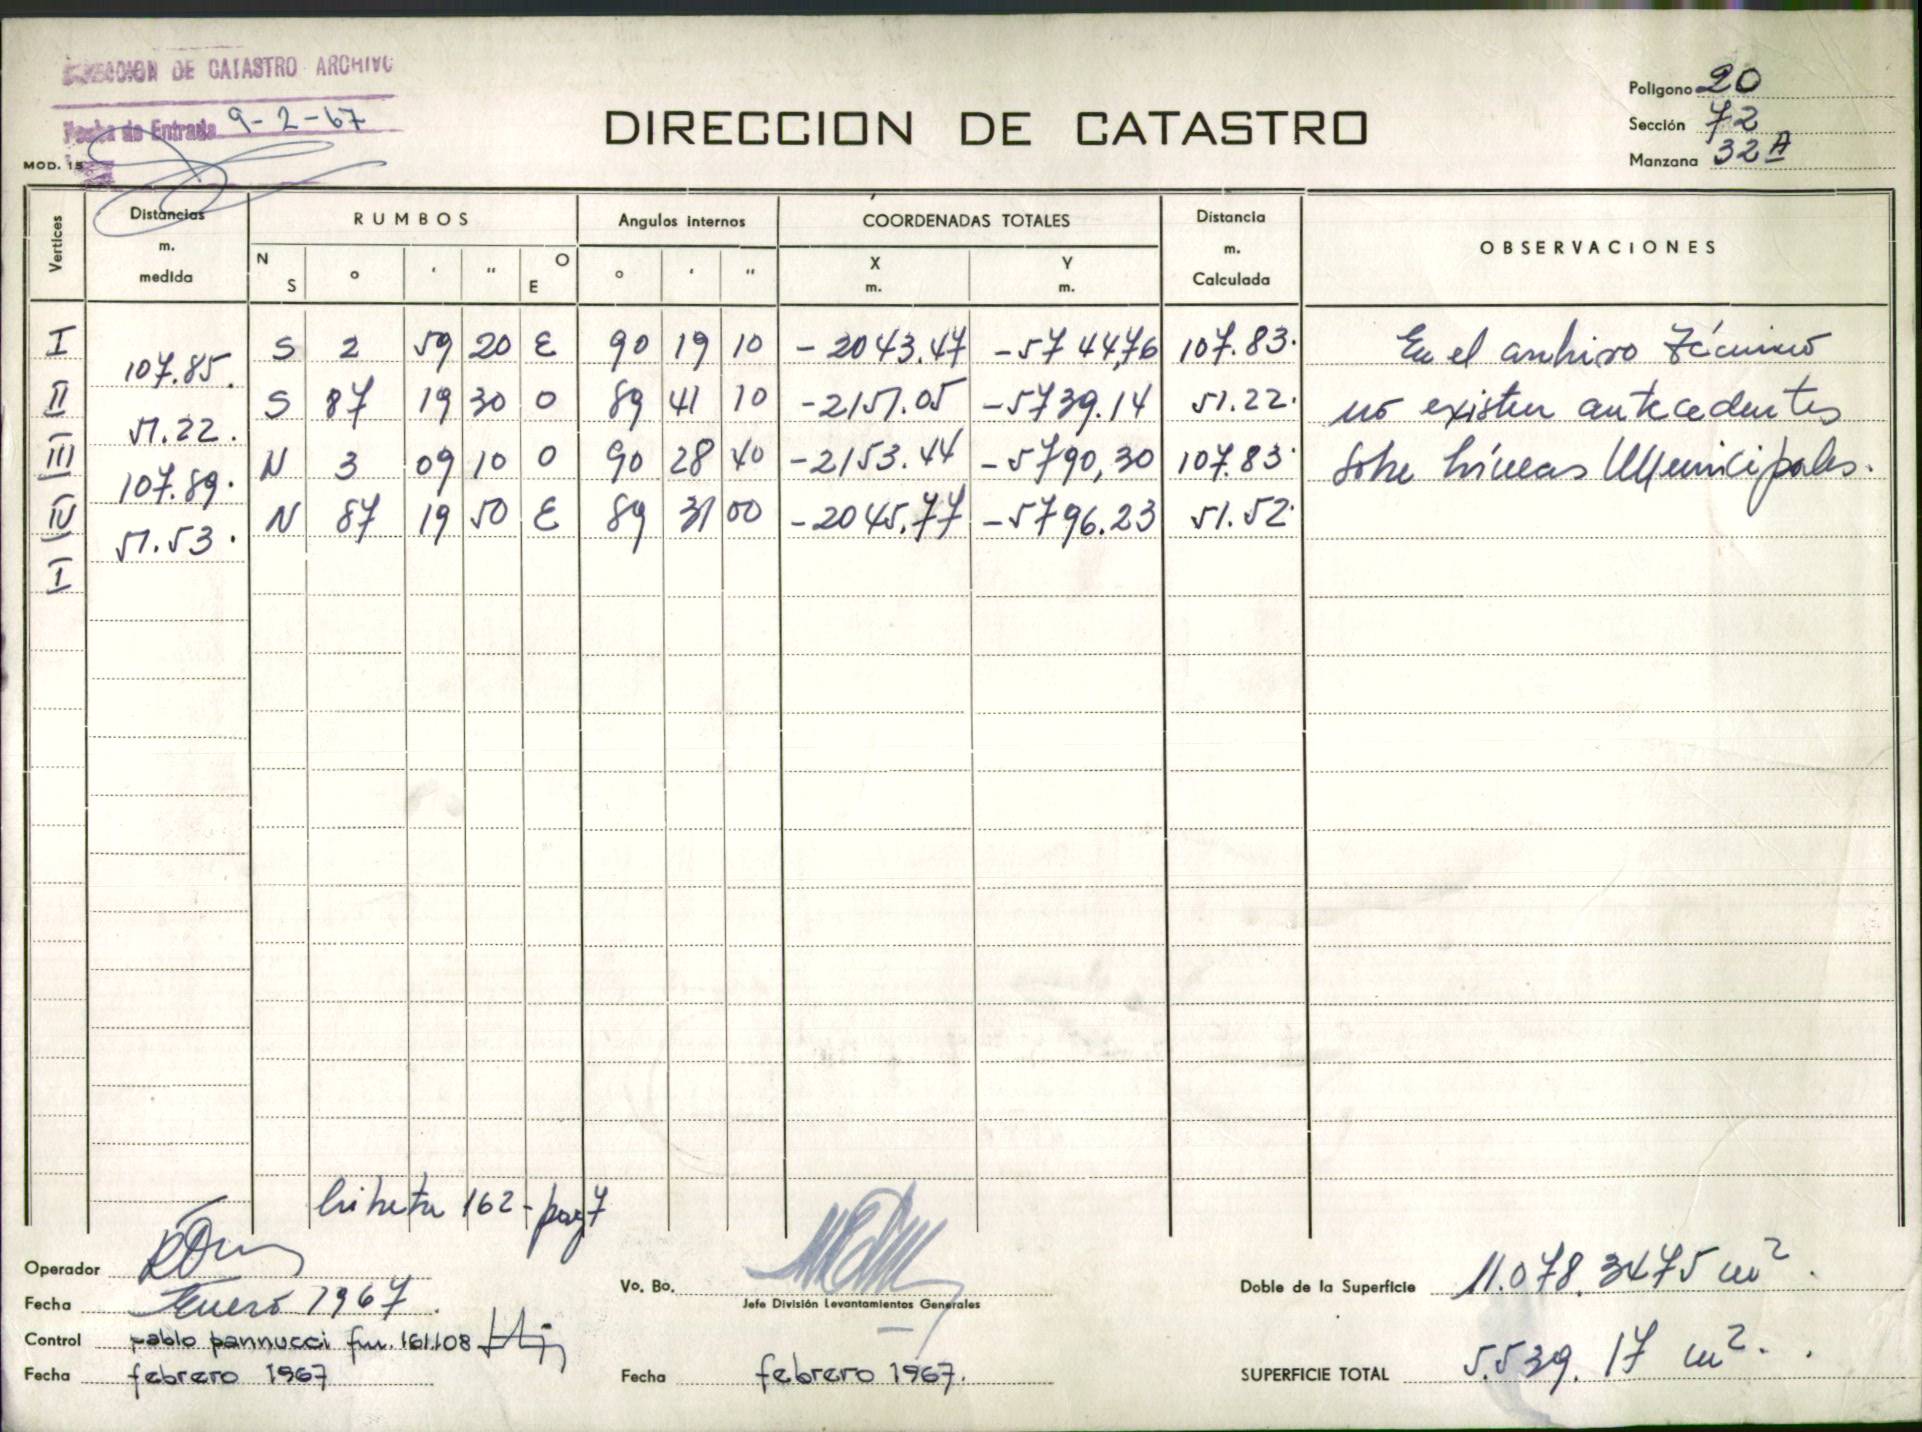 DIRECCION DE CATASTRO ARCHIVO
Fecha de Entrada 9-2-67
MOD. 15
DIRECCION DE CATASTRO
Poligono 20
Sección 72
Manzana 32A
Vertices
Distancias m. medida
RUMBOS
N S ° ' " O E
Angulos internos
° ' "
COORDENADAS TOTALES
X m. Y m.
Distancia m. Calculada
OBSERVACIONES
I S 2 59 20 E 90 19 10 -2043.47 -5744,76 107.83. En el archivo Técnico
107.85.
II S 87 19 30 O 89 41 10 -2151.05 -5739.14 51.22. no existen antecedentes
51.22.
III N 3 09 10 O 90 28 40 -2153.44 -5790,30 107.83. sobre Líneas Municipales.
107.89.
IV N 87 19 50 E 89 31 00 -2045.77 -5796.23 51.52.
51.53.
I
Libreta 162 - pag 7
Operador
Fecha Enero 1967.
Control pablo pannucci fm. 161.108
Fecha febrero 1967
Vo. Bo.
Jefe División Levantamientos Generales
Fecha febrero 1967.
Doble de la Superficie 11.078.3475 m2.
SUPERFICIE TOTAL 5.539.17 m2.